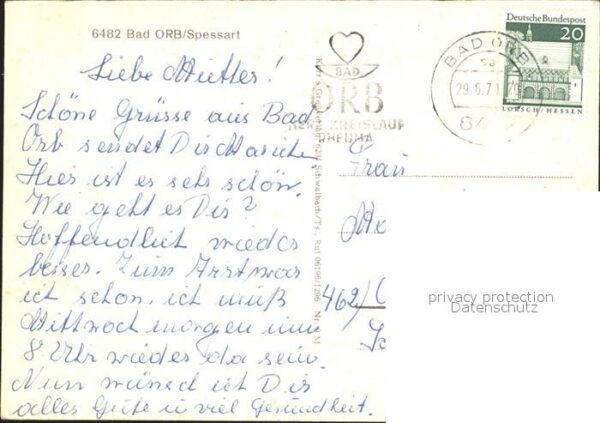 6482 Bad ORB/Spessart
Liebe Mutter!
Schöne Grüsse aus Bad
Orb sendet Dir
Hier ist es sehr schön.
Wie geht es Dir?
Hoffendlich wieder
besser. Zum Arzt war
ich schon, ich muß
Mittwoch morgen um
8 Uhr wieder da sein.
Nun wünsch ich Dir
alles Gute u viel Gesundheit.
BAD
ORB
HERZ KREISLAUF
RHEUMA
BAD ORB
29.6.7
Deutsche Bundespost
20
LORSCH/HESSEN
Frau
462
6231 Schwalbach/Ts., Ruf 06196/1206
privacy protection
Datenschutz